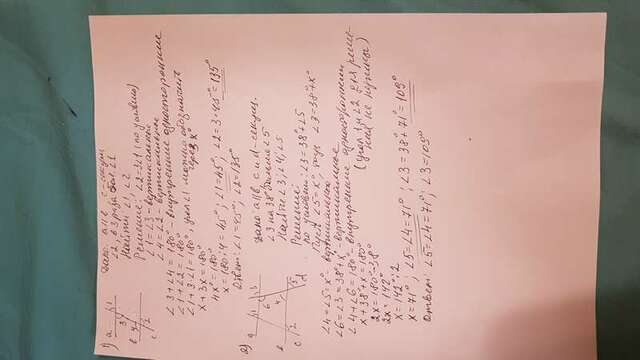 1) Дано: a||b, c-секущ.
a 1
3
b 4
2
c
∠2, в 3 раза бол. ∠1
Найти ∠1, ∠2
Решение: ∠2=3∠1 (по условию)
∠1=∠3 - вертикальные
∠4=∠2 - вертикальные
∠3+∠4=180° - внутренние односторонние
∠1+∠2=180°
∠1+3·∠1=180°, угол ∠1 можно обозначить
через x°
x+3x=180°
4x=180°
x=180°:4=45°; ∠1=45°, ∠2=3·45°=135°
Ответ: ∠1=45°, ∠2=135°
2) Дано: a||b, c и d-секущ.
a 1 3
6
b 4
c 2 5
d
∠3 на 38° больше ∠5
Найти ∠3; ∠4; ∠5
Решение:
по условию: ∠3=38°+∠5
Пусть ∠5=x°, тогда ∠3=38°+x°
∠4=∠5=x° - вертикальные
∠6=∠3=38°+x° - вертикальные
∠4+∠6=180° - внутренние односторонние
x+38°+x=180° (угол 1 и ∠2 для реше-
2x=180°-38° ния не нужны)
2x=142°
x=142°:2
x=71°; ∠5=∠4=71°; ∠3=38°+71°=109°
Ответ: ∠5=∠4=71°; ∠3=109°